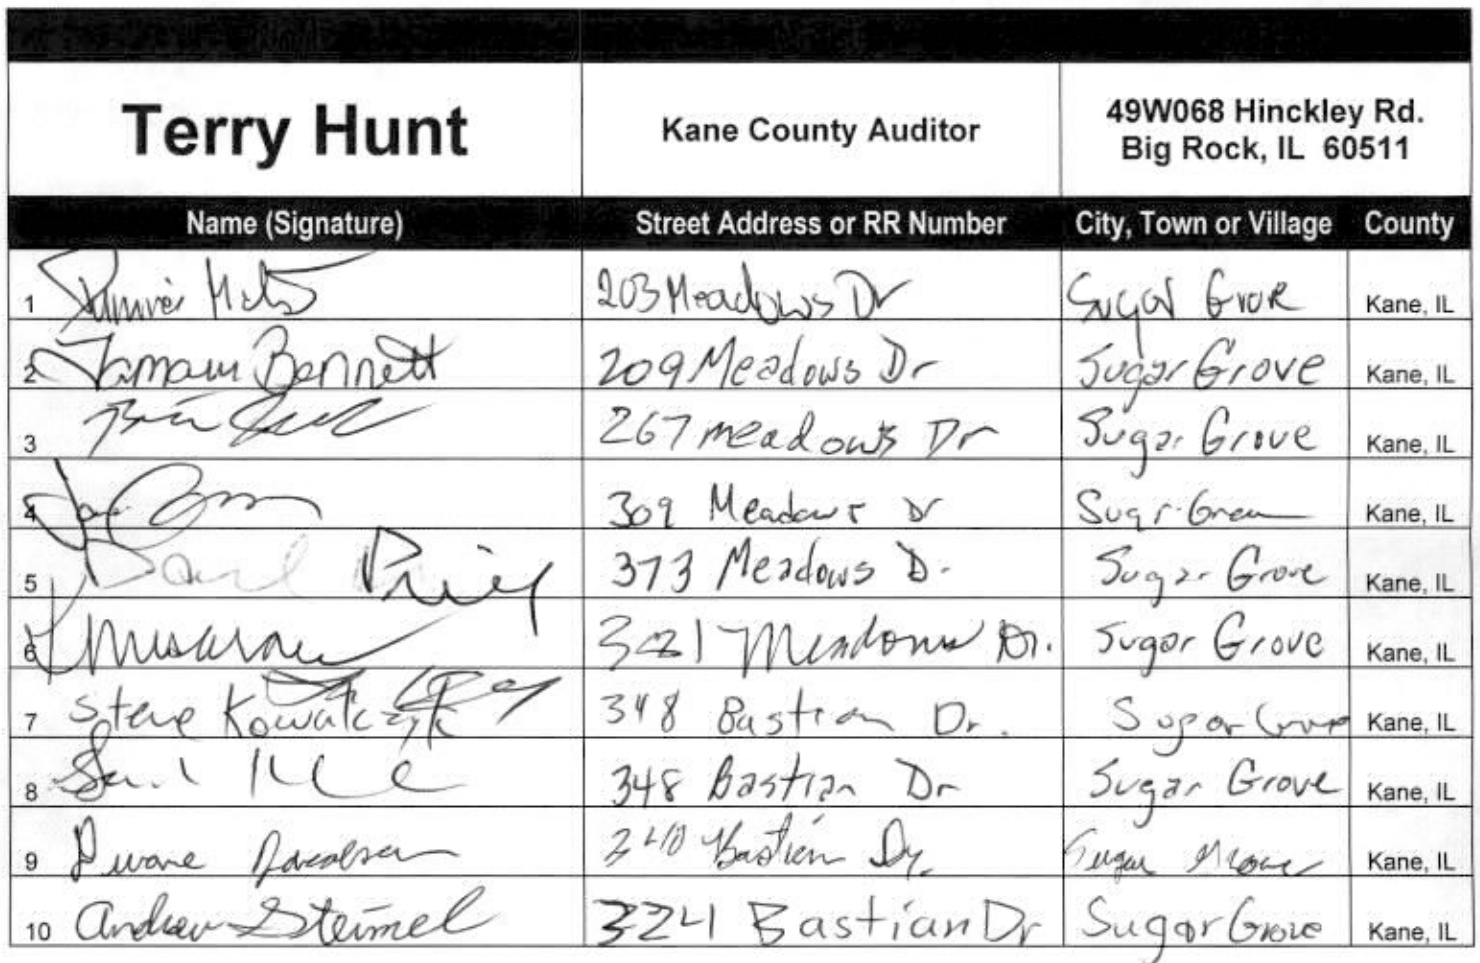 Terry Hunt Kane County Auditor 49W068 Hinckley Rd.
Big Rock, IL 60511
Name (Signature) Street Address or RR Number City, Town or Village County
1 203 Meadows Dr Sugar Grove Kane, IL
2 Tamara Bennett 209 Meadows Dr Sugar Grove Kane, IL
3 267 meadows Dr Sugar Grove Kane, IL
4 309 Meadows Dr Sugar Grove Kane, IL
5 373 Meadows D. Sugar Grove Kane, IL
6 321 Meadows Dr. Sugar Grove Kane, IL
7 Steve Kowalczyk 348 Bastian Dr. Sugar Grove Kane, IL
8 348 Bastian Dr Sugar Grove Kane, IL
9 Duane 340 Bastian Dr. Sugar Grove Kane, IL
10 Andrew Steimel 324 Bastian Dr Sugar Grove Kane, IL